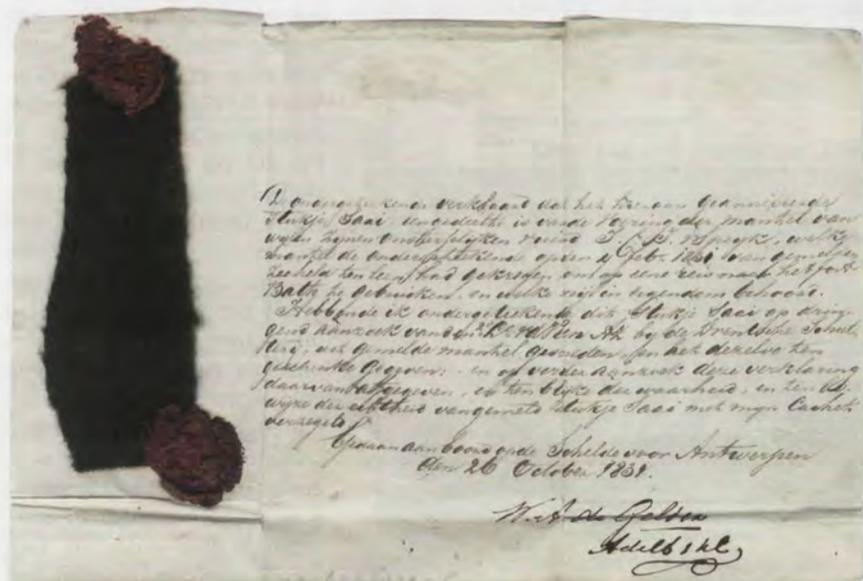 De ondergeteekende verklaard dat het hieraan geannexeerde
stukje Saai, een gedeelte is van de voering der mantel van
wijlen zijnen onsterfelijken vriend J. C. J. v Speyk, welke
mantel de ondergeteekende op den 4 Febr. 1831 van gemelden
zeeheld ten leen had gekregen om op eene reis naar het fort
Bath te gebruiken, en welke in eigendom behoord.
Hebbende ik ondergeteekende dit Stukje Saai op drin-
gend aanzoek van den bij de Drentsche Schut-
terij, uit gemelde mantel gesneden, en het dezelve ten
geschenke gegeven: en op verder aanzoek deze verklaring
daarvan afgegeven, en ten blijke der waarheid, en ten be-
wijze der echtheid van gemeld stukje Saai met mijn Cachet
verzegeld.
Gedaan aan boord op de Schelde voor Antwerpen
den 26 October 1831.
W. A. de Gelder
Adelb 1 kl.